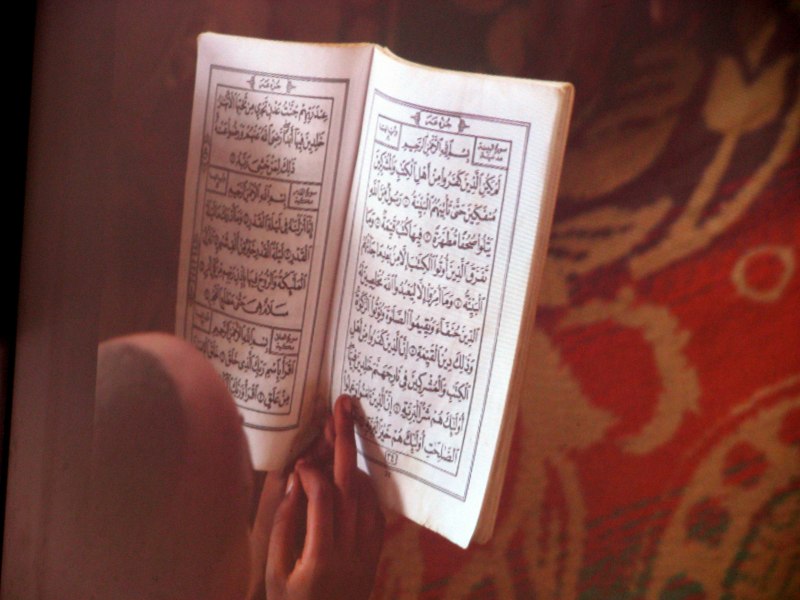 جزء عم
سورة البينة مدنية بسم الله الرحمن الرحيم
لَمْ يَكُنِ الَّذِينَ كَفَرُوا مِنْ أَهْلِ الْكِتَٰبِ وَالْمُشْرِكِينَ
مُنفَكِّينَ حَتَّىٰ تَأْتِيَهُمُ الْبَيِّنَةُ ١ رَسُولٌ مِنَ اللَّهِ
يَتْلُوا صُحُفًا مُطَهَّرَةً ٢ فِيهَا كُتُبٌ قَيِّمَةٌ ٣ وَمَا
تَفَرَّقَ الَّذِينَ أُوتُوا الْكِتَٰبَ إِلَّا مِنْ بَعْدِ مَا جَاءَتْهُمُ
الْبَيِّنَةُ ٤ وَمَا أُمِرُوا إِلَّا لِيَعْبُدُوا اللَّهَ مُخْلِصِينَ لَهُ
الدِّينَ حُنَفَاءَ وَيُقِيمُوا الصَّلَوٰةَ وَيُؤْتُوا الزَّكَوٰةَ
وَذَٰلِكَ دِينُ الْقَيِّمَةِ ٥ إِنَّ الَّذِينَ كَفَرُوا مِنْ أَهْلِ
الْكِتَٰبِ وَالْمُشْرِكِينَ فِي نَارِ جَهَنَّمَ خَٰلِدِينَ فِيهَا
أُولَٰئِكَ هُمْ شَرُّ الْبَرِيَّةِ ٦ إِنَّ الَّذِينَ ءَامَنُوا وَعَمِلُوا
الصَّٰلِحَٰتِ أُولَٰئِكَ هُمْ خَيْرُ الْبَرِيَّةِ
(٣٤)
جزء عم
عِنْدَ رَبِّهِمْ جَنَّٰتُ عَدْنٍ تَجْرِي مِنْ تَحْتِهَا الْأَنْهَٰرُ
خَٰلِدِينَ فِيهَا أَبَدًا رَضِيَ اللَّهُ عَنْهُمْ وَرَضُوا عَنْهُ
ذَٰلِكَ لِمَنْ خَشِيَ رَبَّهُ ٨
سورة القدر مكية بسم الله الرحمن الرحيم
إِنَّا أَنْزَلْنَٰهُ فِي لَيْلَةِ الْقَدْرِ ١ وَمَا أَدْرَىٰكَ مَا لَيْلَةُ
الْقَدْرِ ٢ لَيْلَةُ الْقَدْرِ خَيْرٌ مِنْ أَلْفِ شَهْرٍ ٣ تَنَزَّلُ
الْمَلَٰئِكَةُ وَالرُّوحُ فِيهَا بِإِذْنِ رَبِّهِمْ مِنْ كُلِّ أَمْرٍ ٤
سَلَٰمٌ هِيَ حَتَّىٰ مَطْلَعِ الْفَجْرِ ٥
سورة العلق مكية بسم الله الرحمن الرحيم
اقْرَأْ بِاسْمِ رَبِّكَ الَّذِي خَلَقَ ١ خَلَقَ
مِنْ عَلَقٍ ٢ اقْرَأْ وَرَبُّكَ